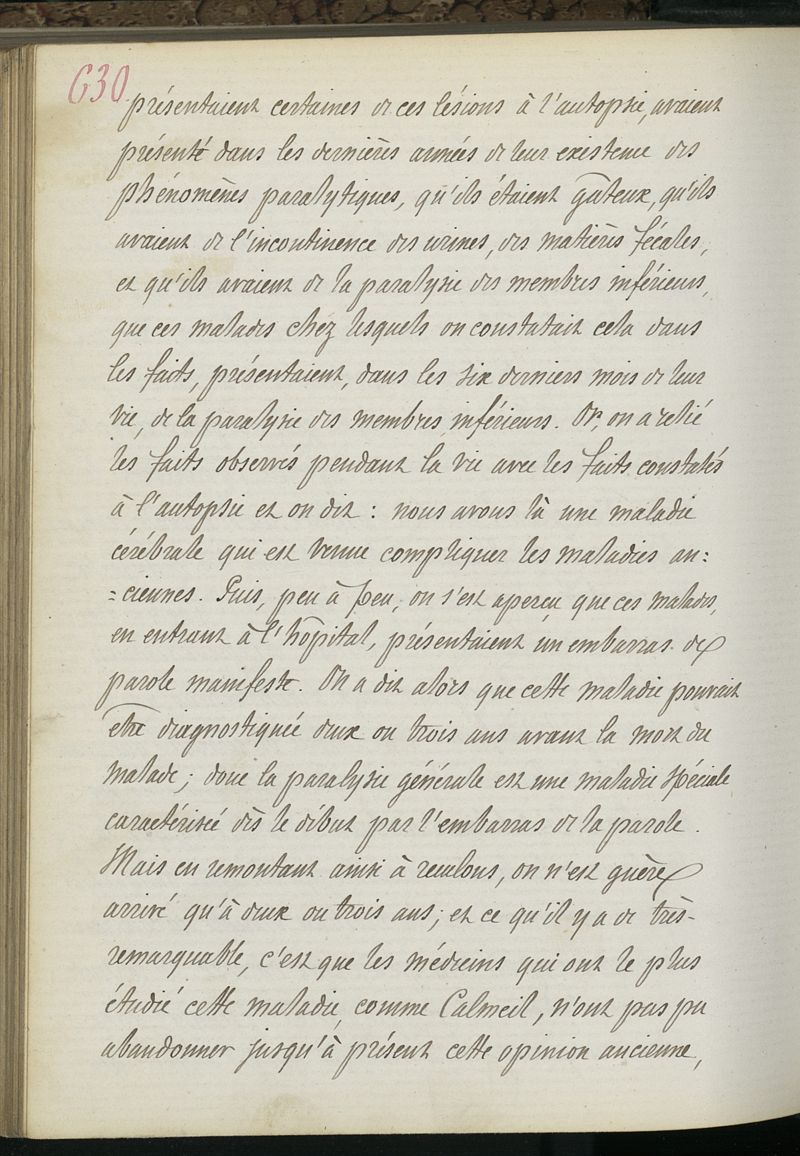 630
présentaient certaines de ces lésions à l'autopsie, avaient
présenté dans les dernières années de leur existence des
phénomènes paralytiques, qu'ils étaient gâteux, qu'ils
avaient de l'incontinence des urines, des matières fécales,
et qu'ils avaient de la paralysie des membres inférieurs,
que ces malades chez lesquels on constatait cela dans
les faits, présentaient, dans les six derniers mois de leur
vie, de la paralysie des membres inférieurs. Or, on a relié
les faits observés pendant la vie avec les faits constatés
à l'autopsie et on dit : nous avons là une maladie
cérébrale qui est venue compliquer les maladies an=
=ciennes. Puis, peu à peu, on s'est aperçu que ces malades,
en entrant à l'hôpital, présentaient un embarras de
parole manifeste. On a dit alors que cette maladie pouvait
être diagnostiquée deux ou trois ans avant la mort du
malade; donc la paralysie générale est une maladie spéciale
caractérisée dès le début par l'embarras de la parole.
Mais en remontant ainsi à reculons, on n'est guère
arrivé qu'à deux ou trois ans; et ce qu'il y a de très-
remarquable, c'est que les médecins qui ont le plus
étudié cette maladie, comme Calmeil, n'ont pas pu
abandonner jusqu'à présent cette opinion ancienne,